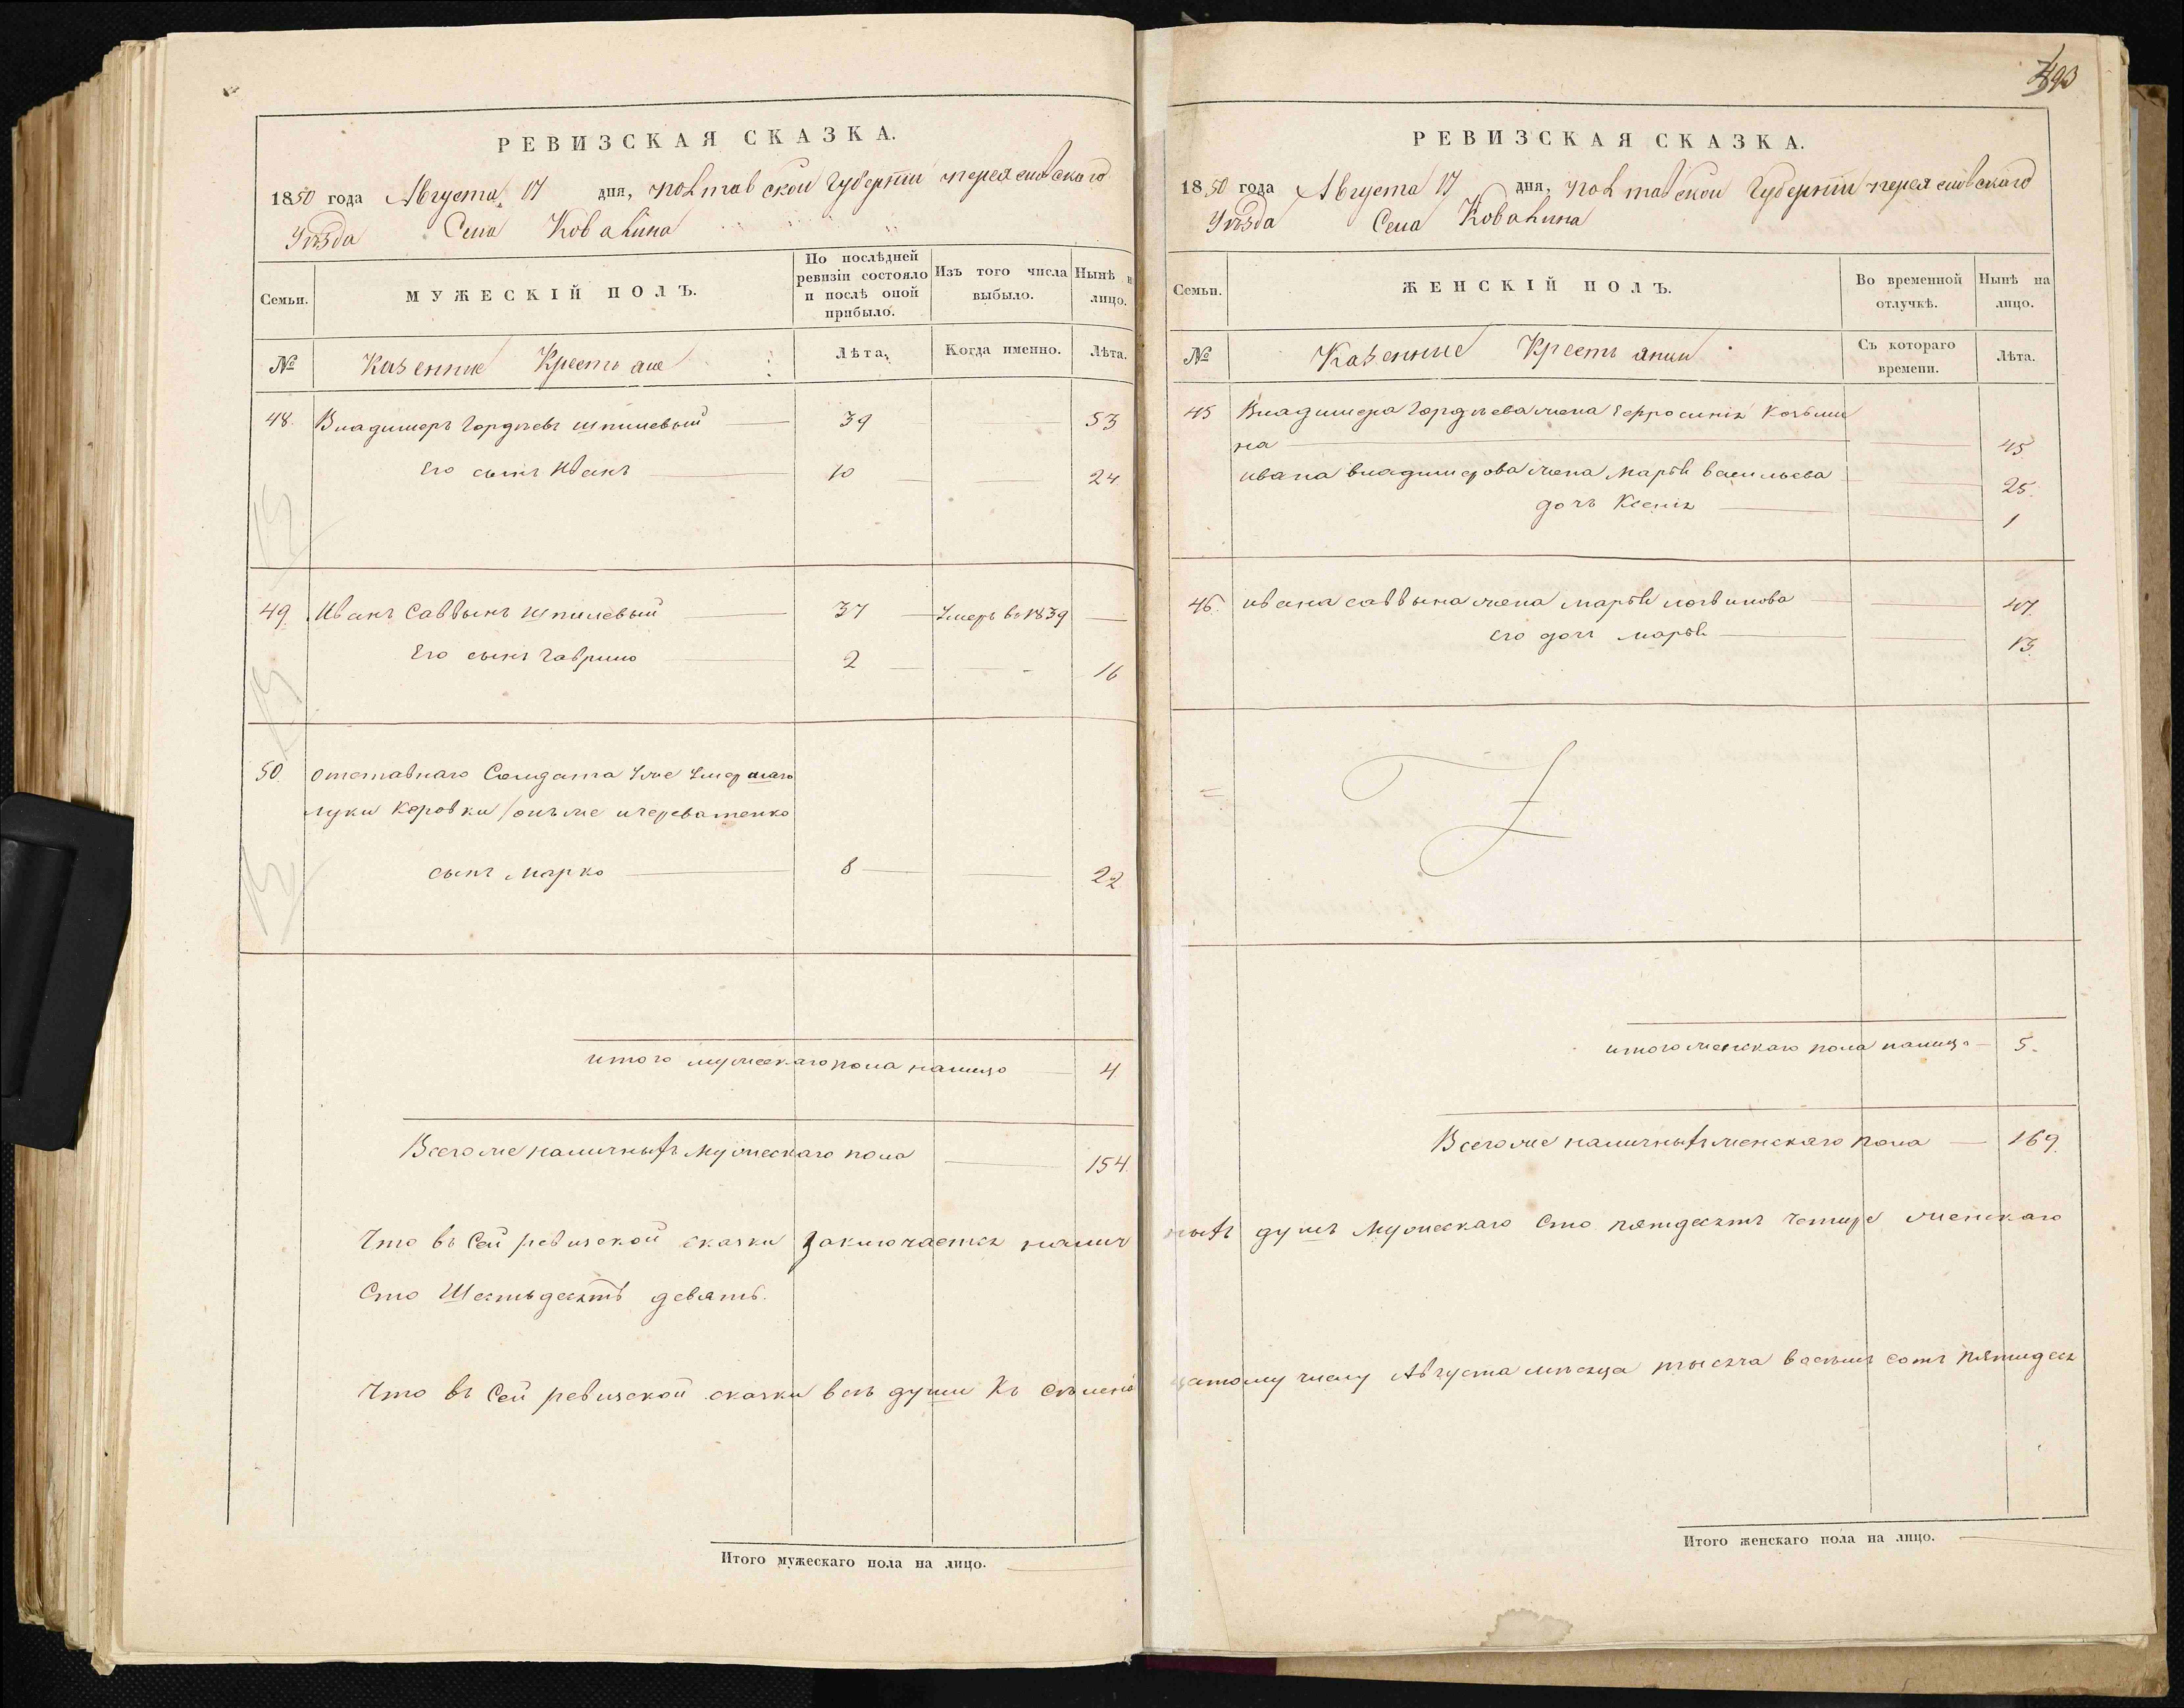 РЕВИЗСКАЯ СКАЗКА.
1850 года Августа 17 дня, Полтавской Губерніи Переяславскаго
Уѣзда Села Ковалина
Семьи.
МУЖЕСКІЙ ПОЛЪ.
По послѣдней ревизіи состояло и послѣ оной прибыло.
Изъ того числа выбыло.
Нынѣ н лицо.
№
Казенные Крестьяне
Лѣта.
Когда именно.
Лѣта.
48. Владимеръ Гордѣевъ Шпилевый 39 53
Его сынъ Иванъ 10 24
49. Иванъ Саввынъ Шпилевый 37 Умеръ въ 1839
Его сынъ Гаврило 2 16
50 Отставнаго Солдата уже умершаго
Луки Коровки /онъ же
сынъ Марко 8 22
итого мужескаго пола налицо 4
Всего же наличныхъ Мужескаго пола 154.
Что въ Сей ревизской сказки Заключается налич
Сто Шестьдесятъ девять.
Что въ Сей ревизской сказки всѣ души къ
Итого мужескаго пола на лицо.
493
РЕВИЗСКАЯ СКАЗКА.
1850 года Августа 17 дня, Полтавской Губерніи Переяславскаго
Уѣзда Села Ковалина
Семьи.
ЖЕНСКІЙ ПОЛЪ.
Во временной отлучкѣ.
Нынѣ на лицо.
№
Казенные Крестьянки
Съ котораго времени.
Лѣта.
45 Владимера Гордѣева жена Ефросинія Козьми
на 45
Ивана Владимерова жена Марья Васильева 25.
дочь Ксенія 1
46. Ивана Саввына жена Марья Логвинова 47.
Его дочь Марья 13.
итого женскаго пола налицо 5.
Всего же наличныхъ женскаго пола 169.
ныхъ душъ Мужескаго Сто пятдесятъ четыре женскаго
цатому числу Августа мѣсяца тысяча восемь сотъ пятидеся
Итого женскаго пола на лицо.